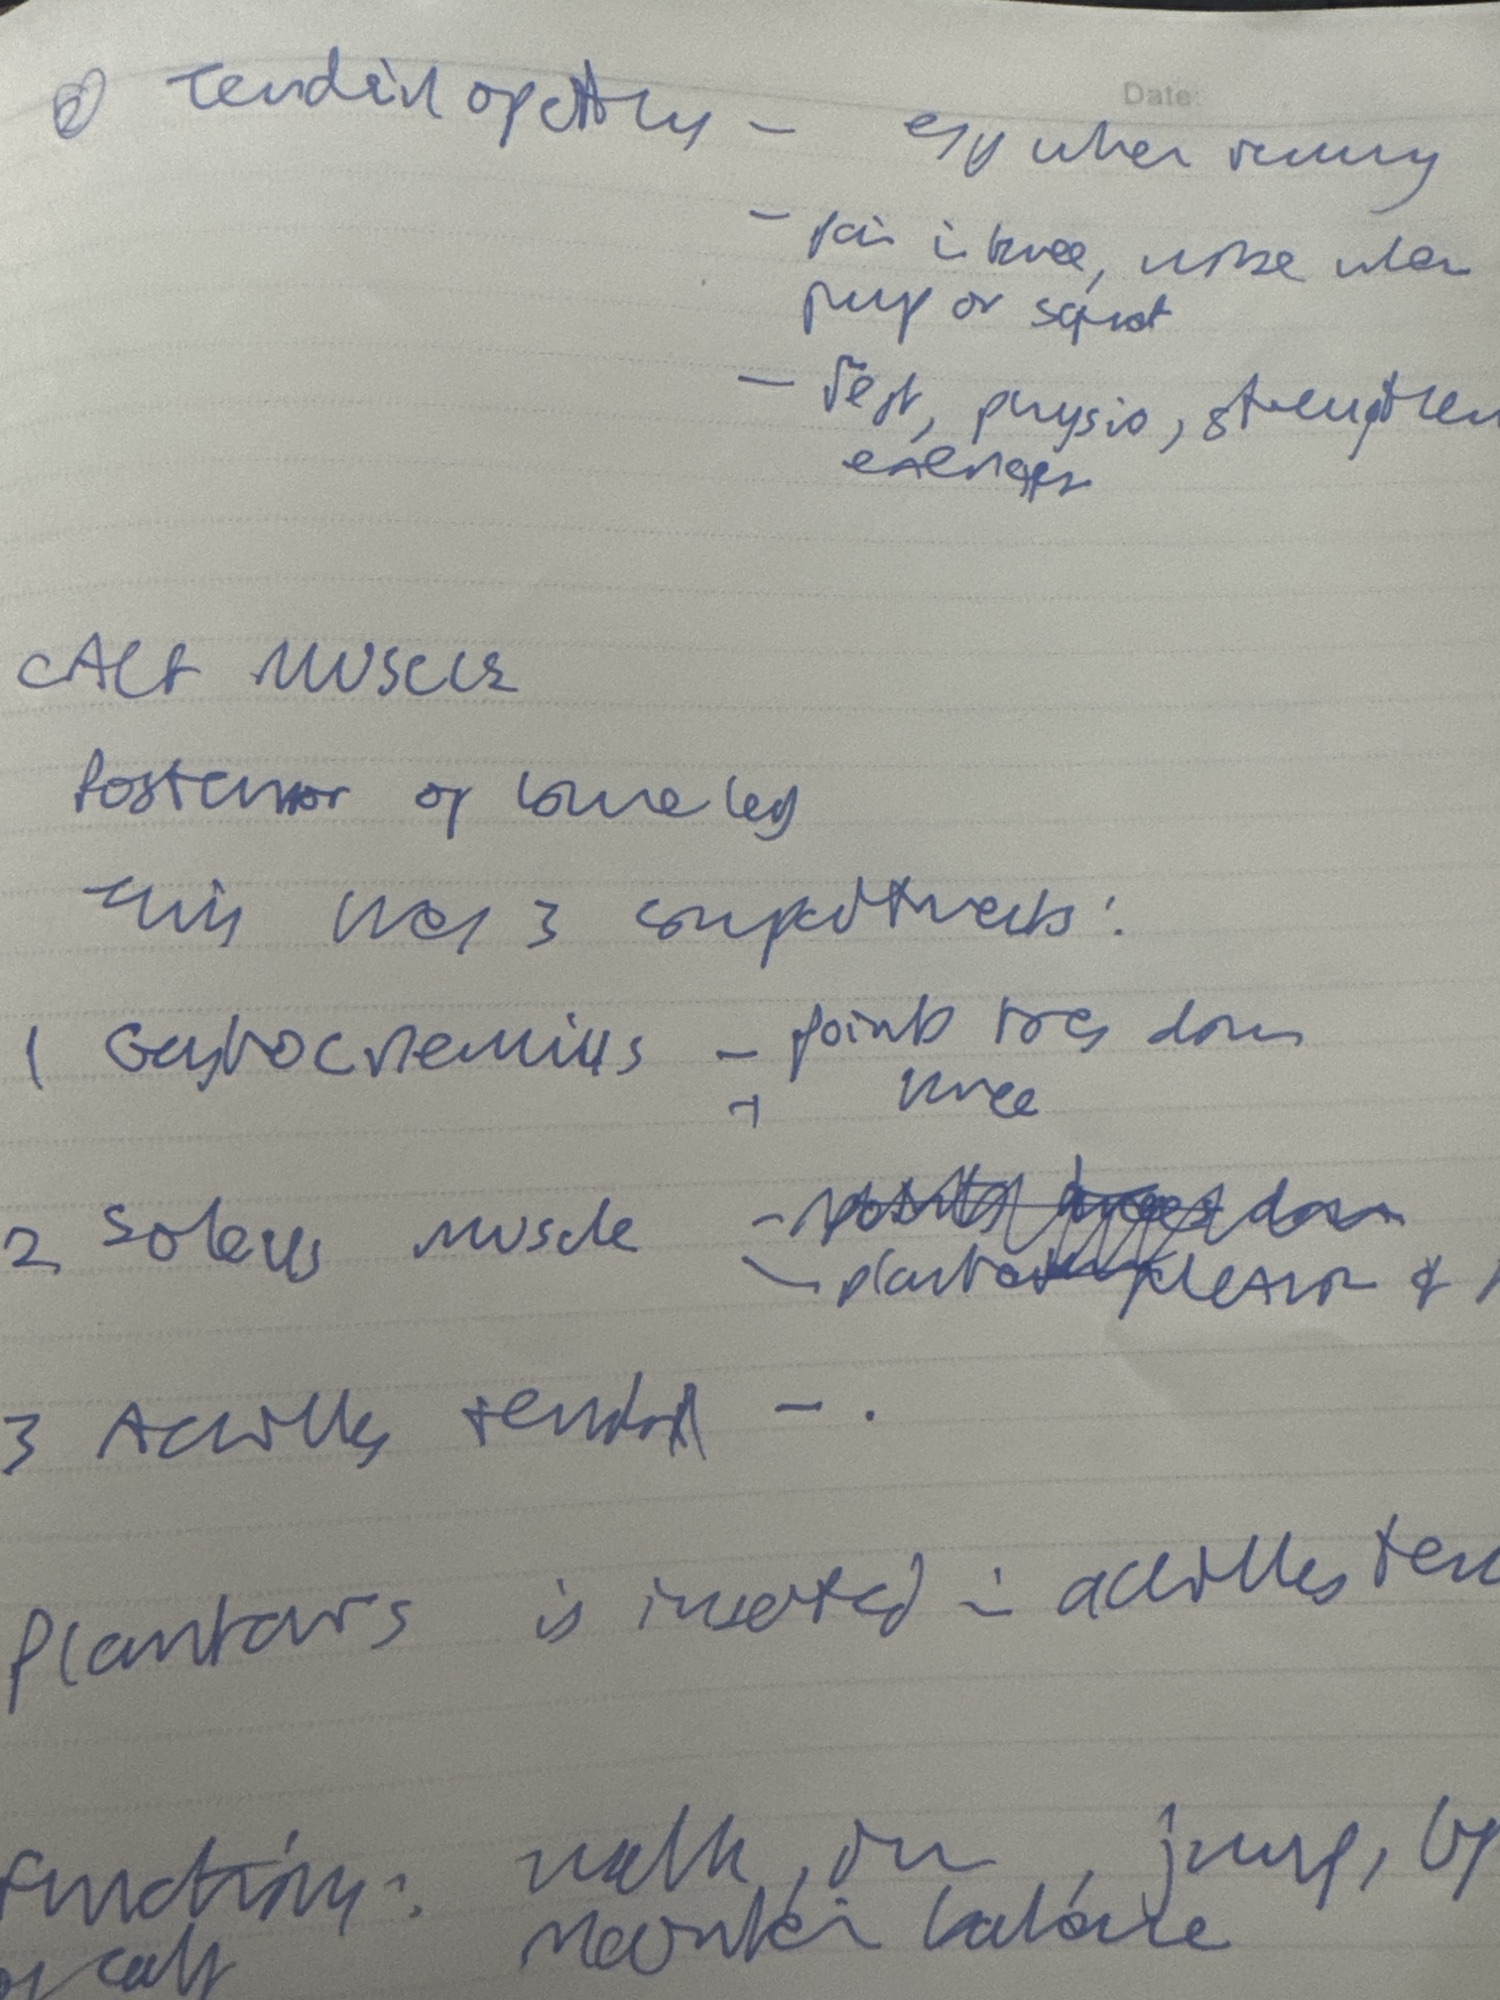 Date:
② Tendinopathy - esp when running
- pain in knee, worse when
jump or squat
- Rest, physio, strengthen
exercises
CALF MUSCLE
Posterior of lower leg
This has 3 compartments:
1 Gastrocnemius - points toes down
+ knee
2 Soleus muscle -
- plantar flexion &
3 Achilles tendon - .
Plantaris is inserted in achilles ten
Function: walk, run, jump,
of calf maintain balance